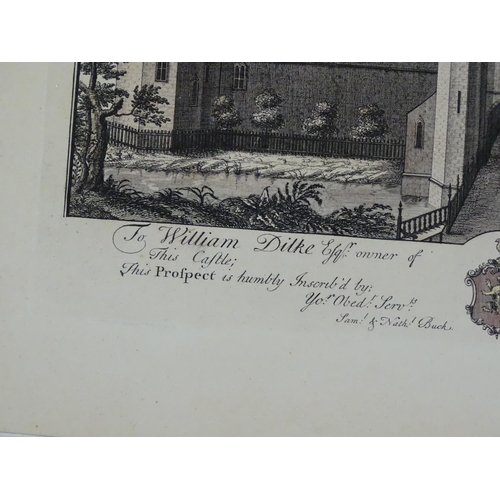 To William Dilke Esqr. owner of
This Caſtle;
This Proſpect is humbly Inscrib'd by;
Yor. Obedt. Servts.
Saml. & Nathl. Buck.